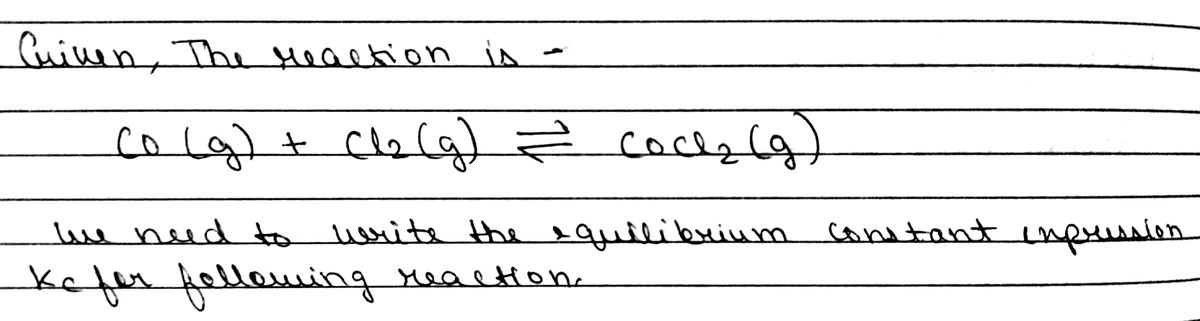 Given, The reaction is -
CO (g) + Cl2 (g) ⇌ COCl2 (g)
we need to write the equilibrium constant expression
Kc for following reaction.